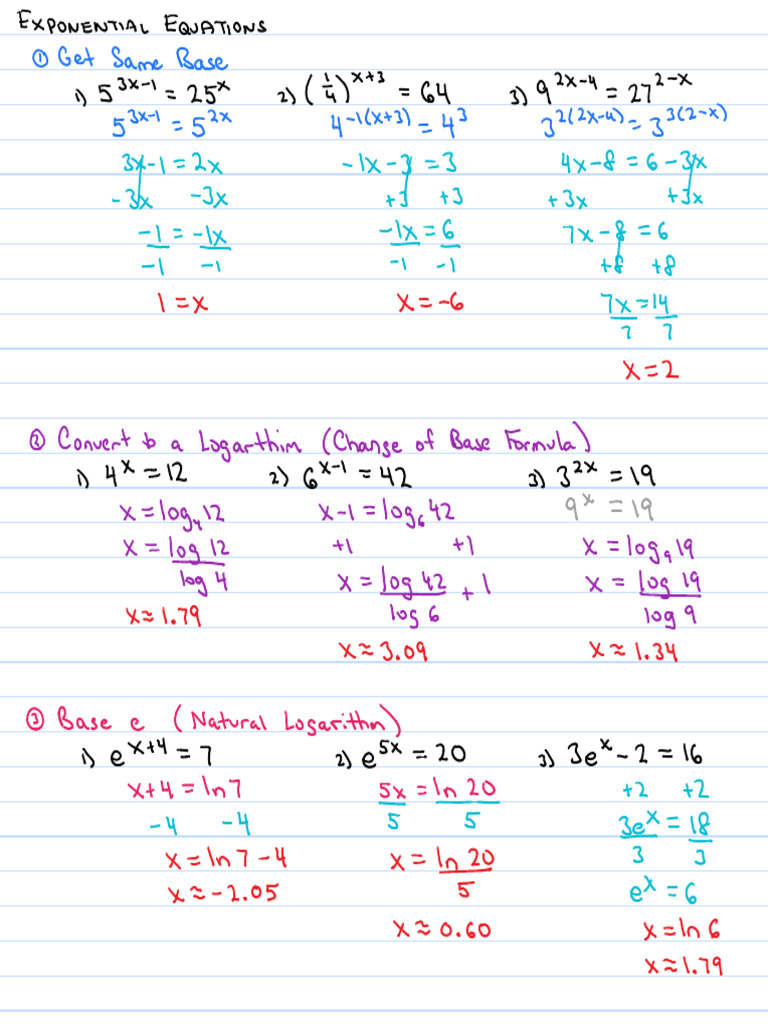 EXPONENTIAL EQUATIONS
① Get Same Base
1) 5^(3x-1) = 25^x   2) (1/4)^(x+3) = 64   3) 9^(2x-4) = 27^(2-x)
5^(3x-1) = 5^(2x)   4^(-1(x+3)) = 4^3   3^(2(2x-4)) = 3^(3(2-x))
3x-1 = 2x   -1x-3 = 3   4x-8 = 6-3x
-3x -3x   +3 +3   +3x +3x
-1 = -1x   -1x = 6   7x-8 = 6
-1 -1   -1 -1   +8 +8
1 = x   x = -6   7x = 14
7 7
x = 2
② Convert to a Logarthim (Change of Base Formula)
1) 4^x = 12   2) 6^(x-1) = 42   3) 3^(2x) = 19
x = log₄12   x-1 = log₆42   9^x = 19
x = log 12 / log 4   +1 +1   x = log₉19
x = log 42 / log 6 + 1   x = log 19 / log 9
x ≈ 1.79   x ≈ 3.09   x ≈ 1.34
③ Base e (Natural Logarithm)
1) e^(x+4) = 7   2) e^(5x) = 20   3) 3e^x - 2 = 16
x+4 = ln 7   5x = ln 20   +2 +2
-4 -4   5 5   3e^x = 18
x = ln 7 - 4   x = ln 20 / 5   3 3
x ≈ -2.05   e^x = 6
x ≈ 0.60   x = ln 6
x ≈ 1.79